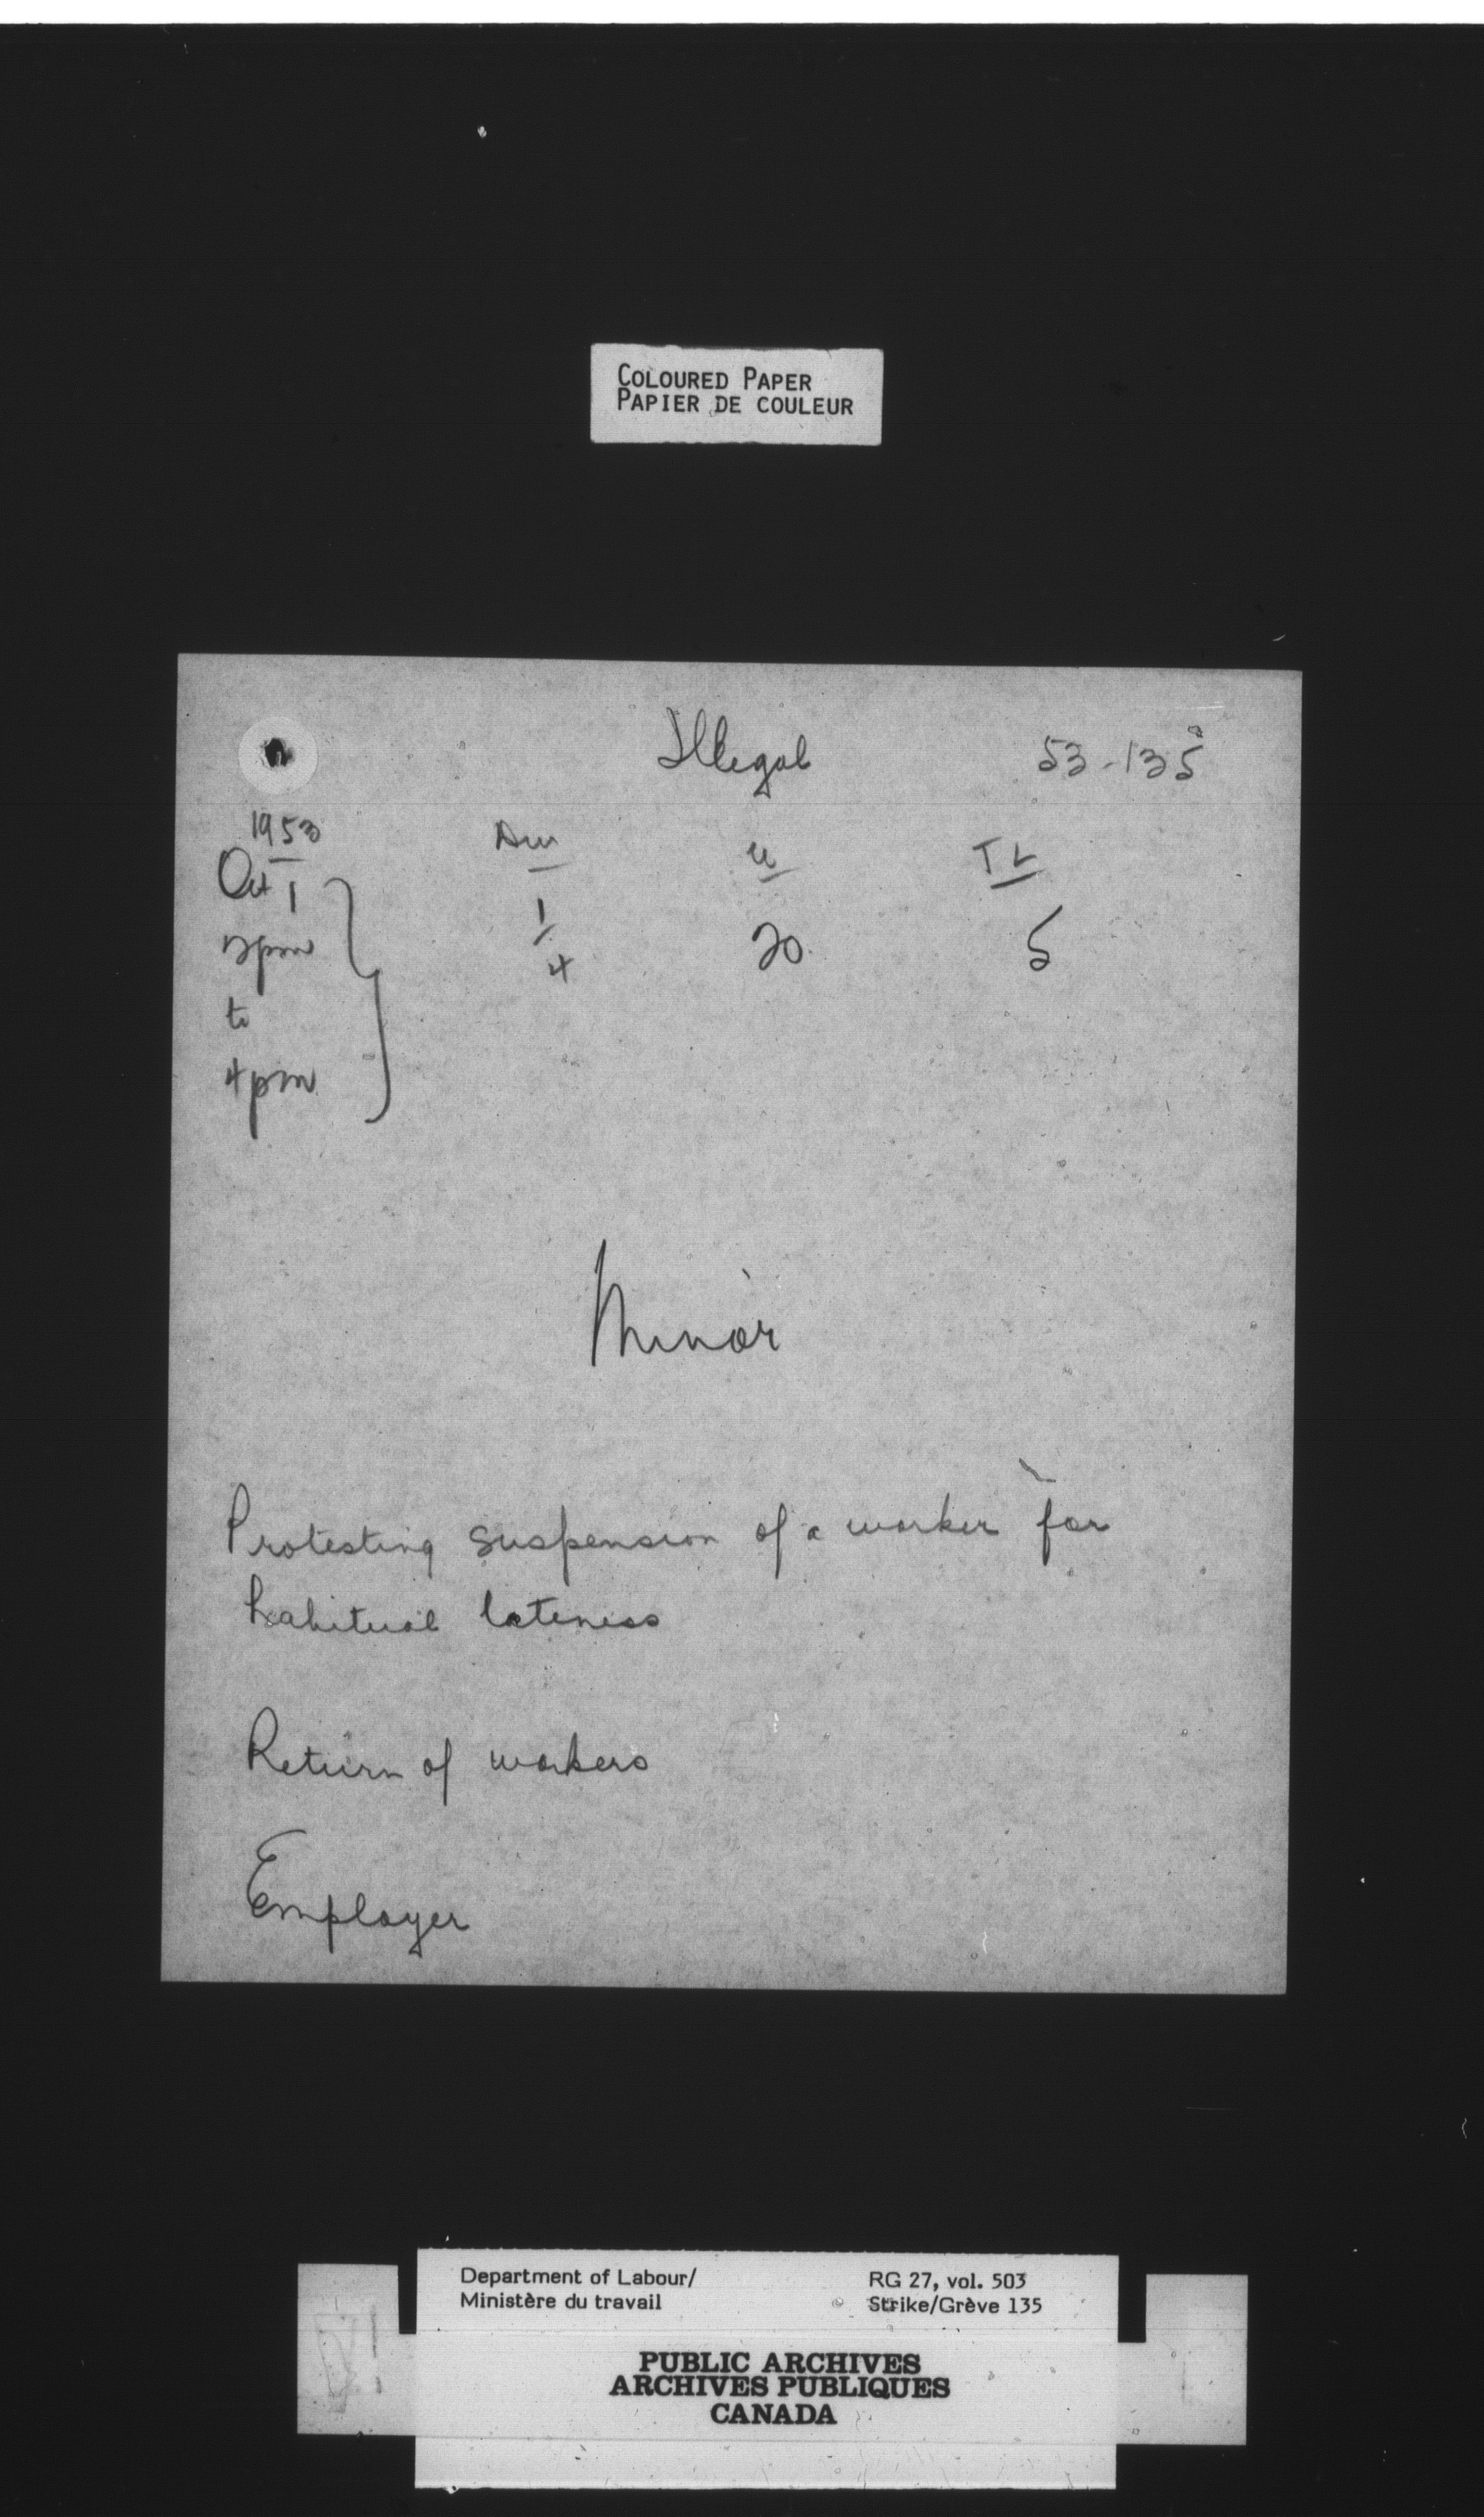 COLOURED PAPER
PAPIER DE COULEUR
Illegal 53-135
1953 Dur W T L
Oct 1
2pm 1/4 20 5
to
4pm
Minor
Protesting suspension of a worker for
habitual lateness
Return of workers
Employer
Department of Labour/ RG 27, vol. 503
Ministère du travail Strike/Grève 135
PUBLIC ARCHIVES
ARCHIVES PUBLIQUES
CANADA